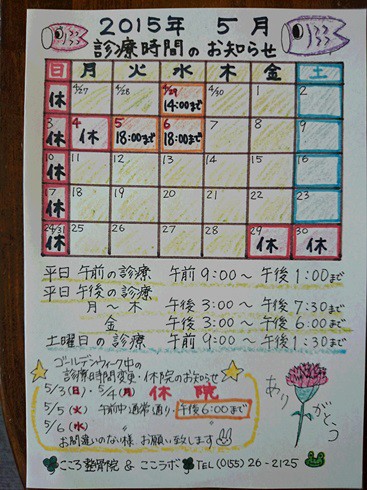 2015年 5月
診療時間のお知らせ
日 月 火 水 木 金 土
休 4/27 4/28 4/29 14:00まで 4/30 1 2
3 休 4 休 5 18:00まで 6 18:00まで 7 8 9
10 休 11 12 13 14 15 16
17 休 18 19 20 21 22 23
24/31 休 25 26 27 28 29 休 30 休
平日 午前の診療 午前 9:00 ～ 午後 1:00まで
平日 午後の診療
月 ～ 木 午後 3:00 ～ 午後 7:30まで
金 午後 3:00 ～ 午後 6:00まで
土曜日の診療 午前 9:00 ～ 午後 1:30まで
ゴールデンウィーク中の
診療時間変更・休院のお知らせ
5/3(日)・5/4(月) 休院
5/5(火) 午前中通常通り 午後6:00まで
5/6(水) 〃
お間違いのない様 お願い致します
ありがとう
こころ整骨院 & ここラボ TEL (0155) 26-2125